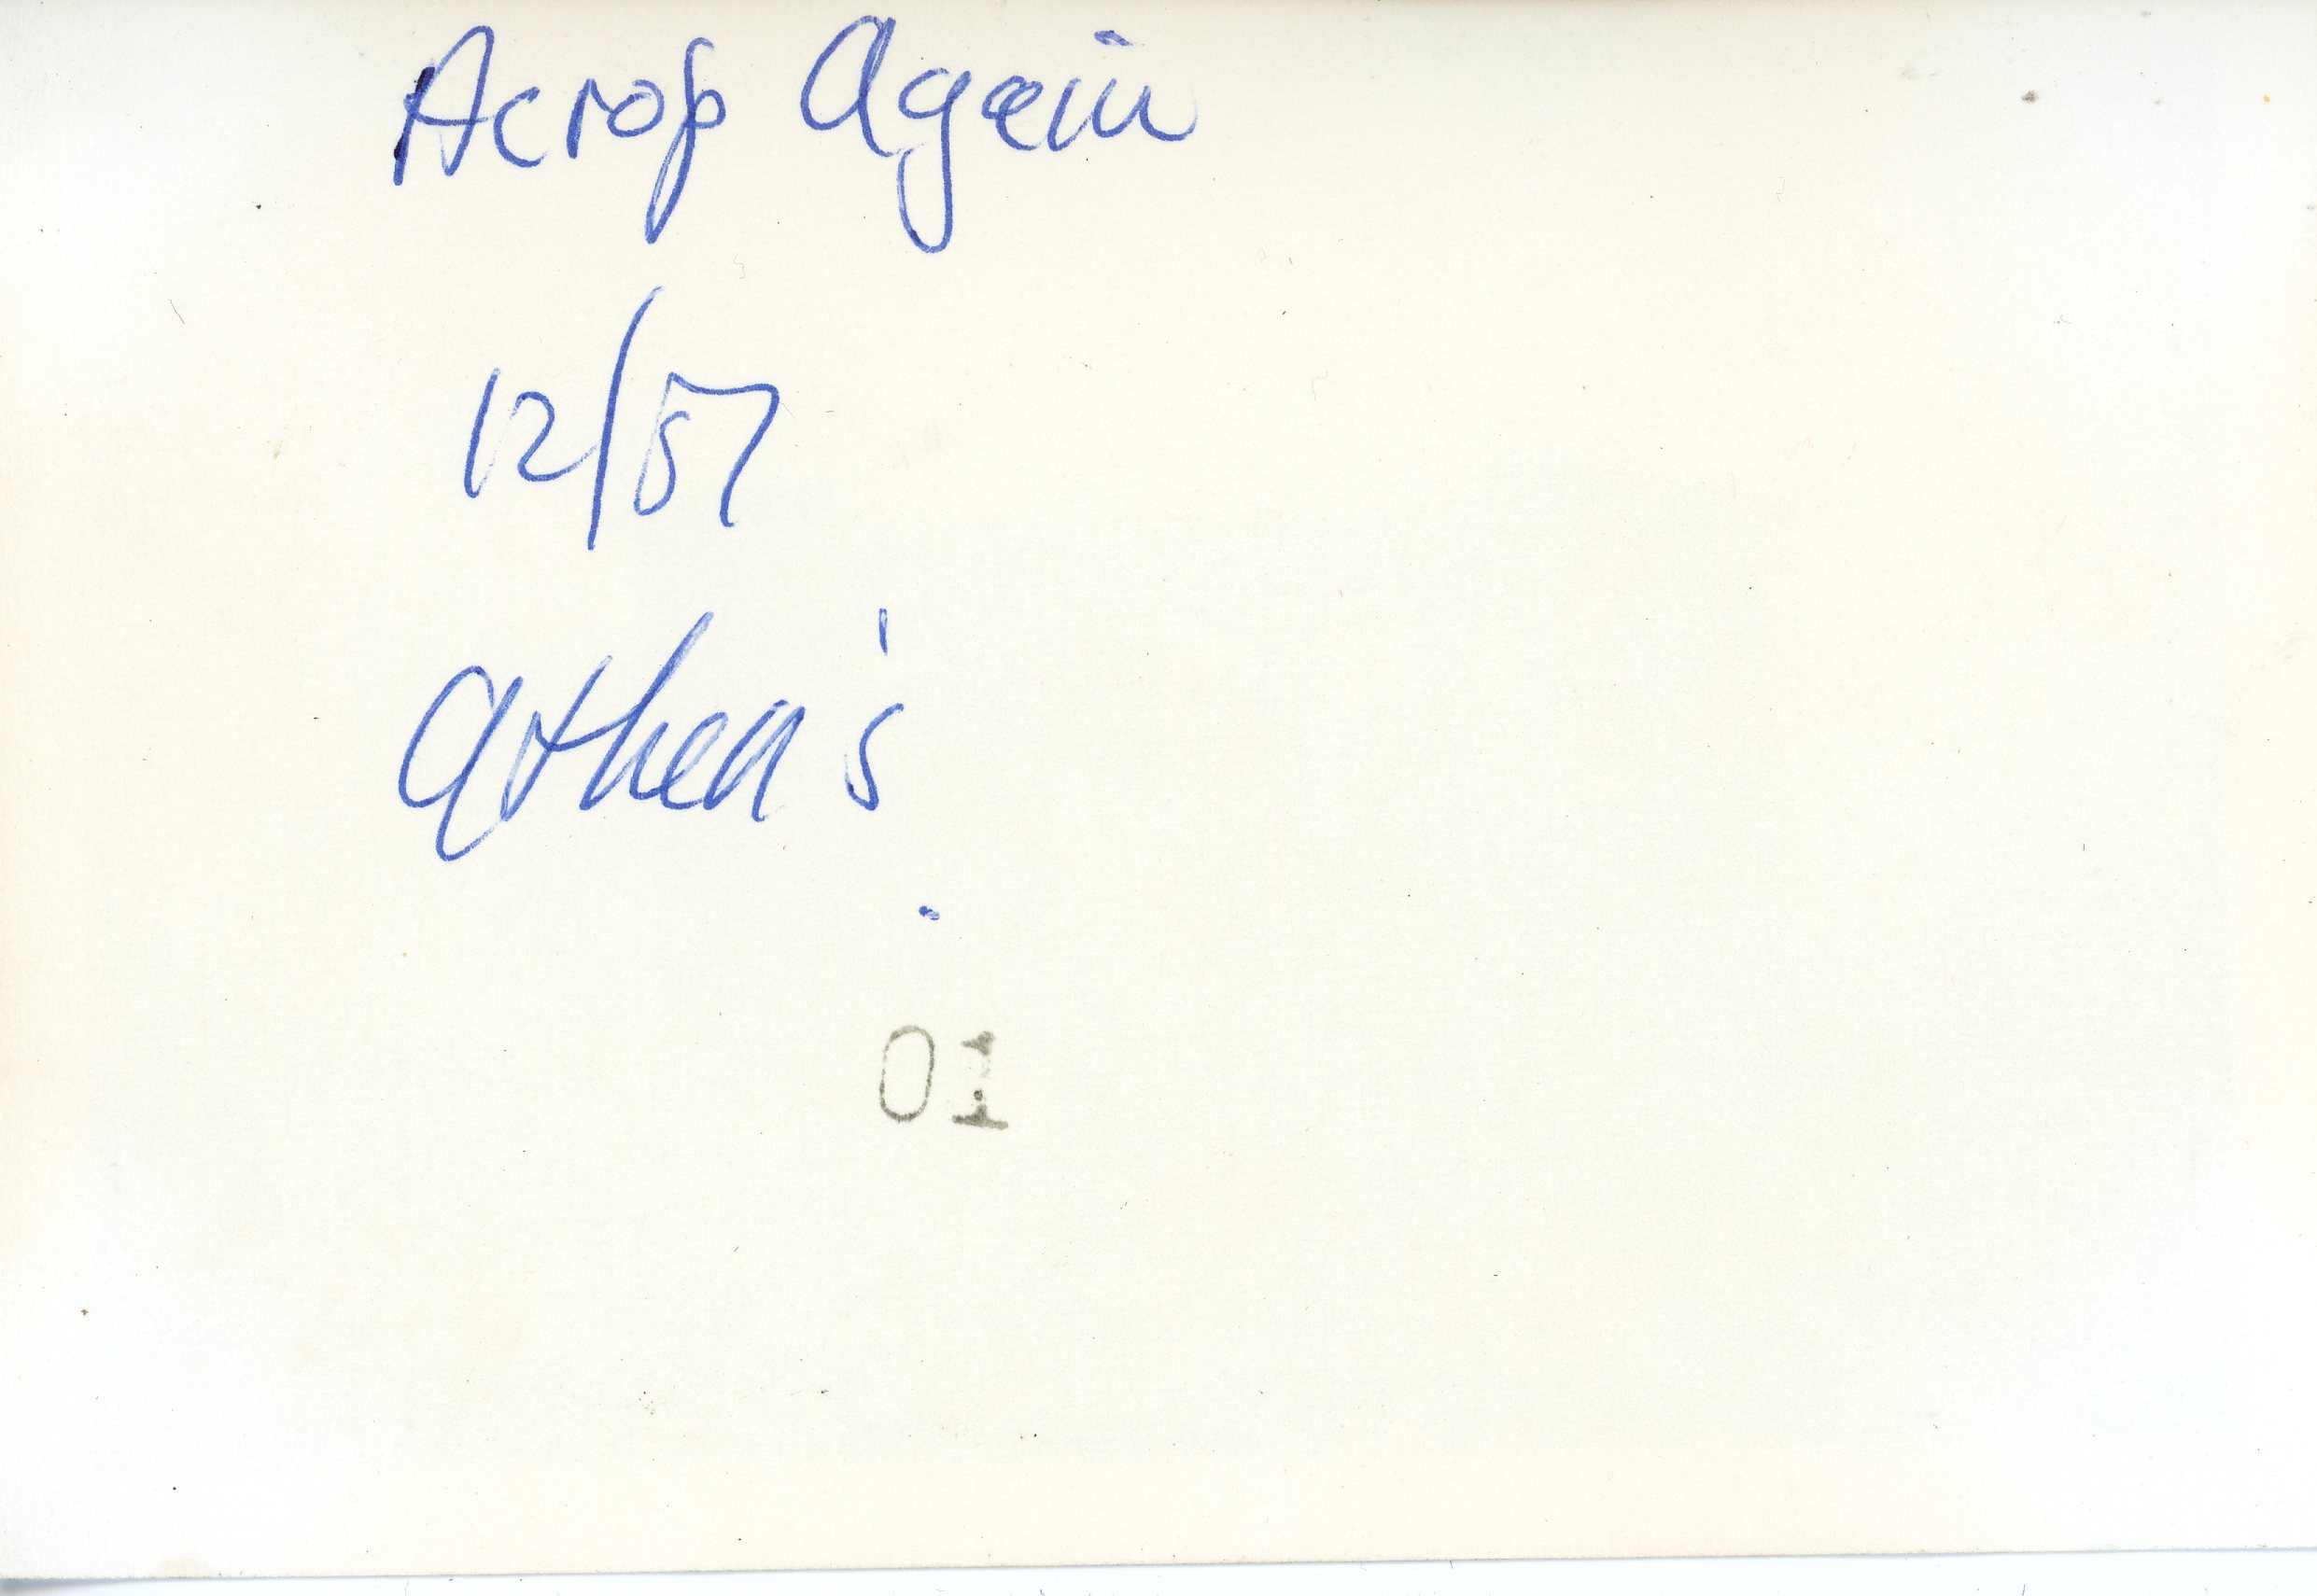 Acrop Again
12/57
Athen's
01